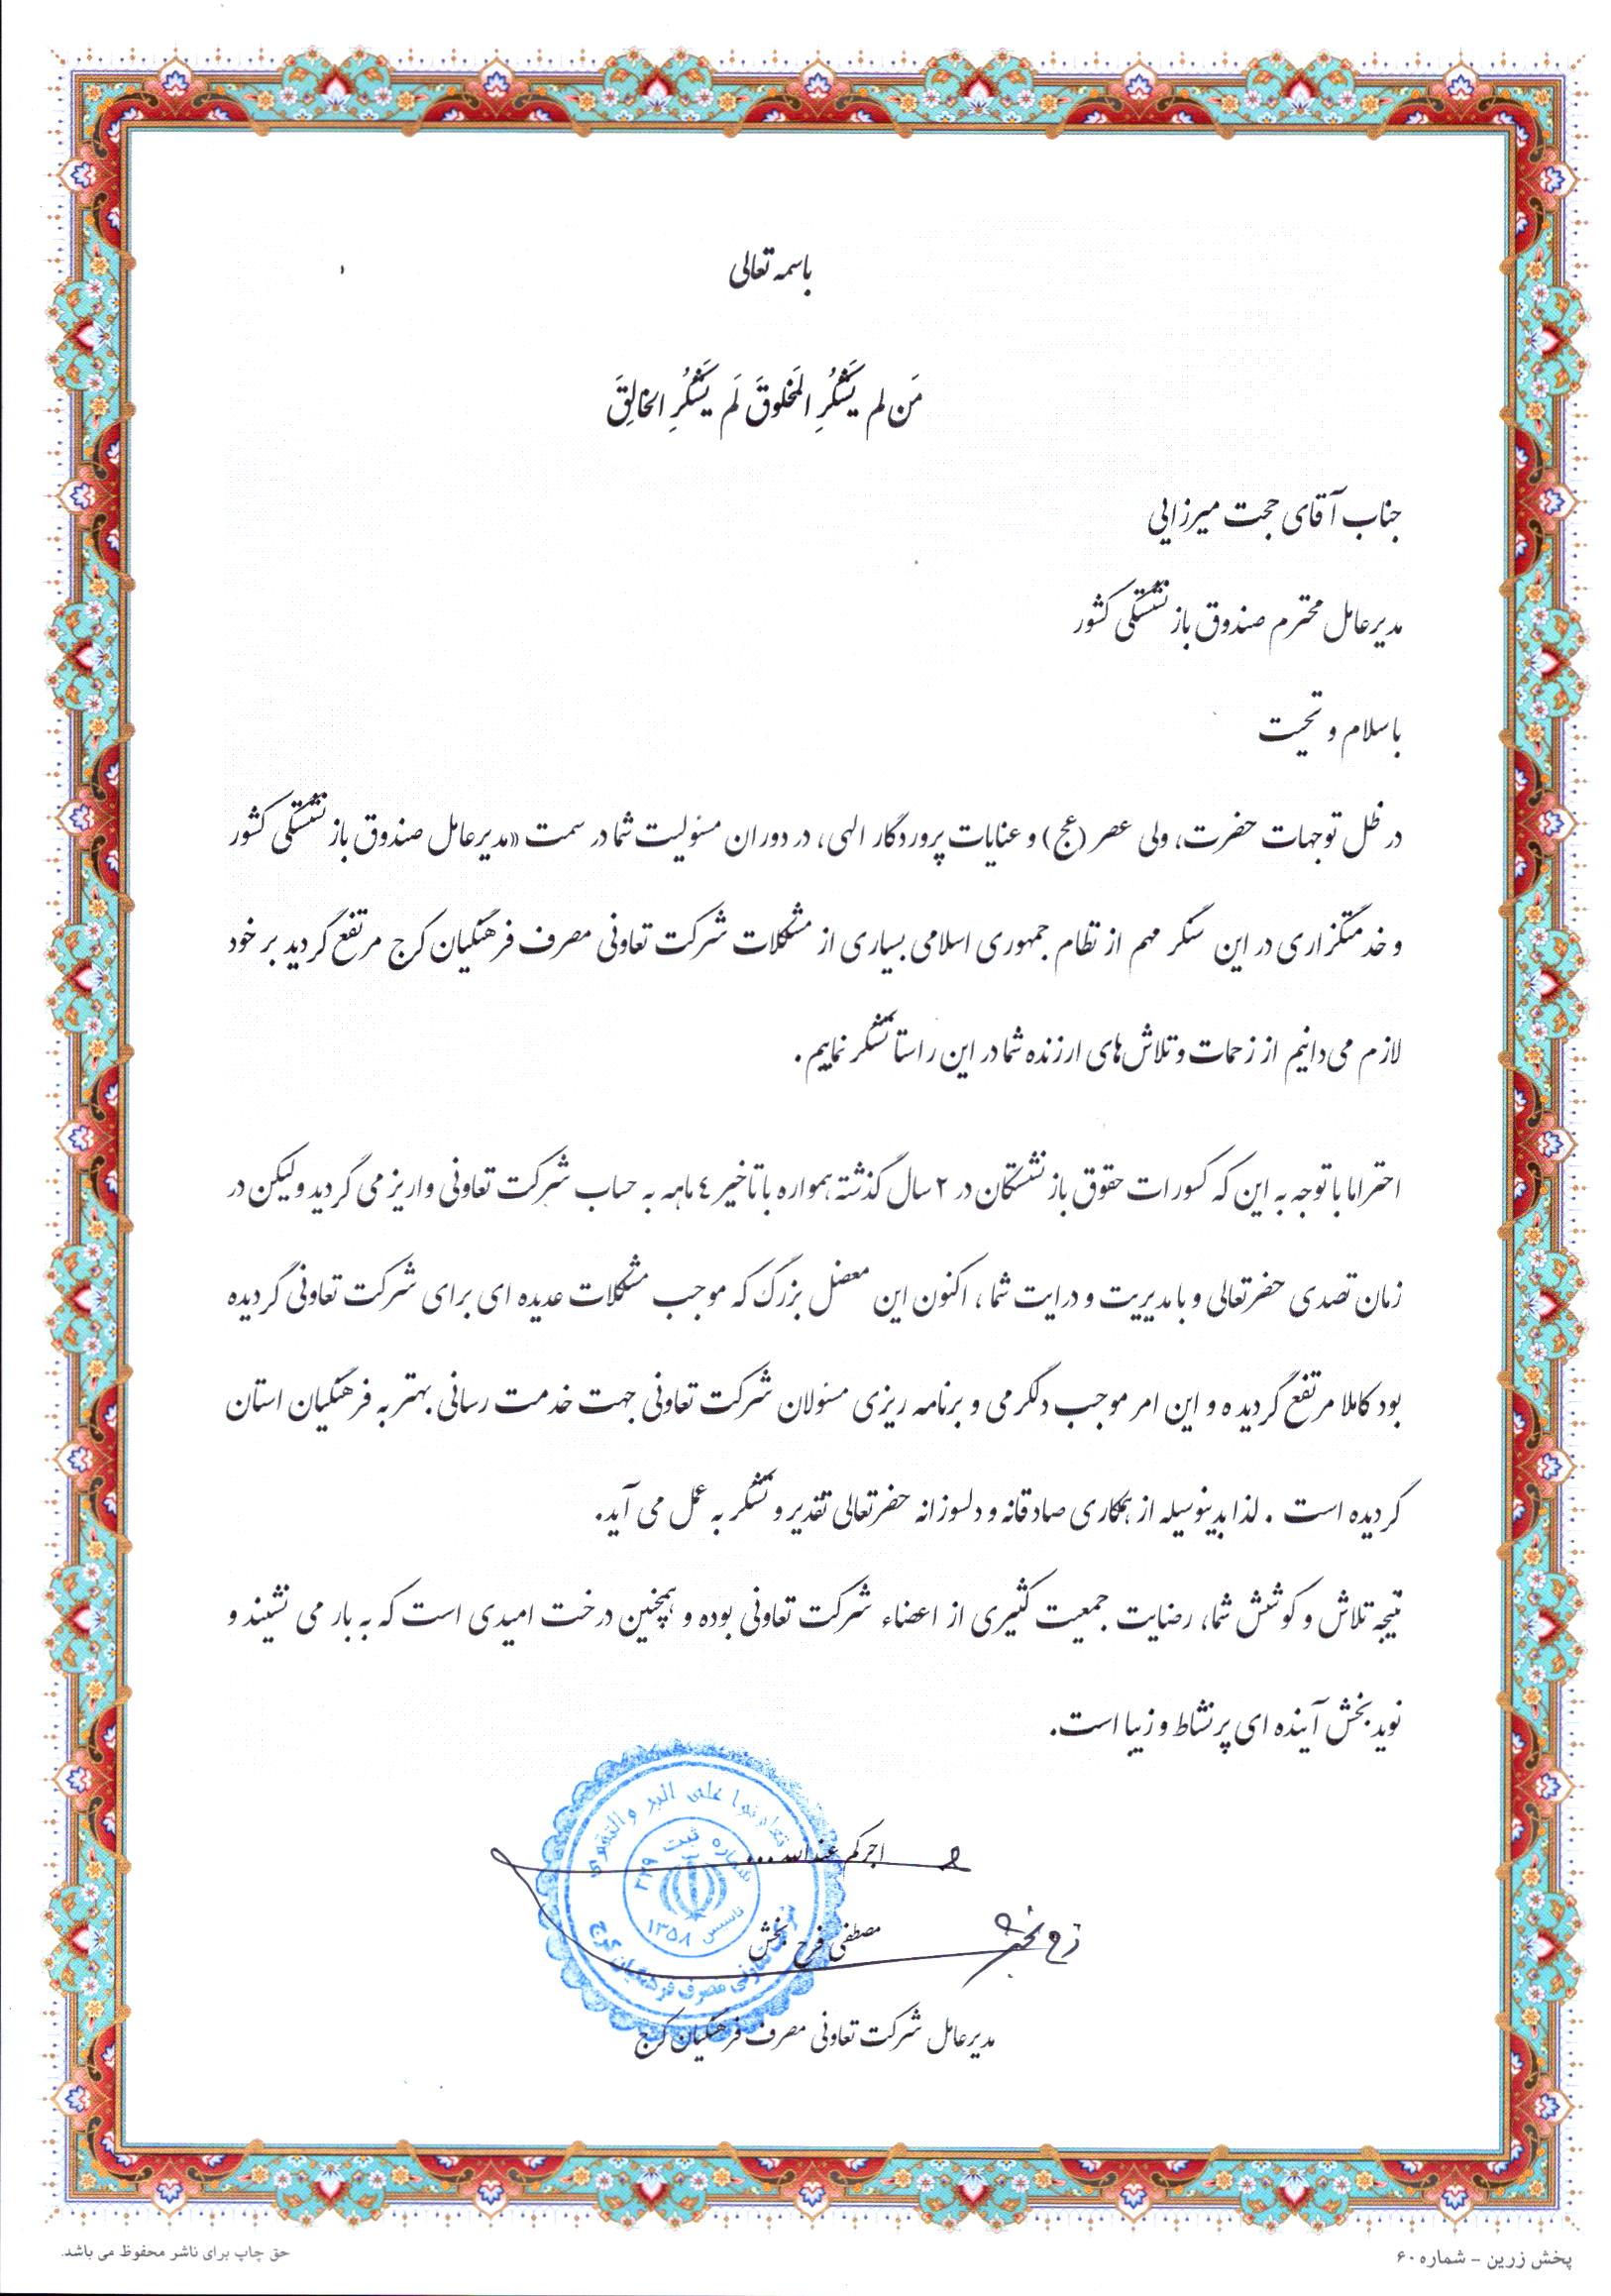 باسمه تعالی
مَن لم یَشکُرِ المَخلوقَ لَم یَشکُرِ الخالِقَ
جناب آقای حجت میرزایی
مدیرعامل محترم صندوق بازنشستگی کشور
باسلام و تحیت
در ظل توجهات حضرت، ولی عصر (عج) و عنایات پروردگار الهی، در دوران مسئولیت شما در سمت «مدیرعامل صندوق بازنشستگی کشور
و خدمتگزاری در این سنگر مهم از نظام جمهوری اسلامی بسیاری از مشکلات شرکت تعاونی مصرف فرهنگیان کرج مرتفع گردید بر خود
لازم می‌دانیم از زحمات و تلاش‌های ارزنده شما در این راستا تشکر نماییم.
احتراما با توجه به این که کسورات حقوق بازنشستگان در ۲ سال گذشته همواره با تاخیر ٤ ماهه به حساب شرکت تعاونی واریز می گردید ولیکن در
زمان تصدی حضرتعالی و با مدیریت و درایت شما، اکنون این معضل بزرگ که موجب مشکلات عدیده ای برای شرکت تعاونی گردیده
بود کاملا مرتفع گردیده و این امر موجب دلگرمی و برنامه ریزی مسئولان شرکت تعاونی جهت خدمت رسانی بهتر به فرهنگیان استان
گردیده است. لذا بدینوسیله از همکاری صادقانه و دلسوزانه حضرتعالی تقدیر و تشکر به عمل می آید.
نتیجه تلاش و کوشش شما، رضایت جمعیت کثیری از اعضاء شرکت تعاونی بوده و همچنین درخت امیدی است که به بار می نشیند و
نوید بخش آینده ای پرنشاط و زیبا است.
تعاونوا علی البر والتقوی
شماره ثبت ۳۲۹
تاسیس ۱۳۵۸
شرکت تعاونی مصرف فرهنگیان کرج
اجرکم عندالله ...
مصطفی فرح بخش
فرح بخش
مدیرعامل شرکت تعاونی مصرف فرهنگیان کرج
پخش زرین - شماره ۶۰
حق چاپ برای ناشر محفوظ می باشد.